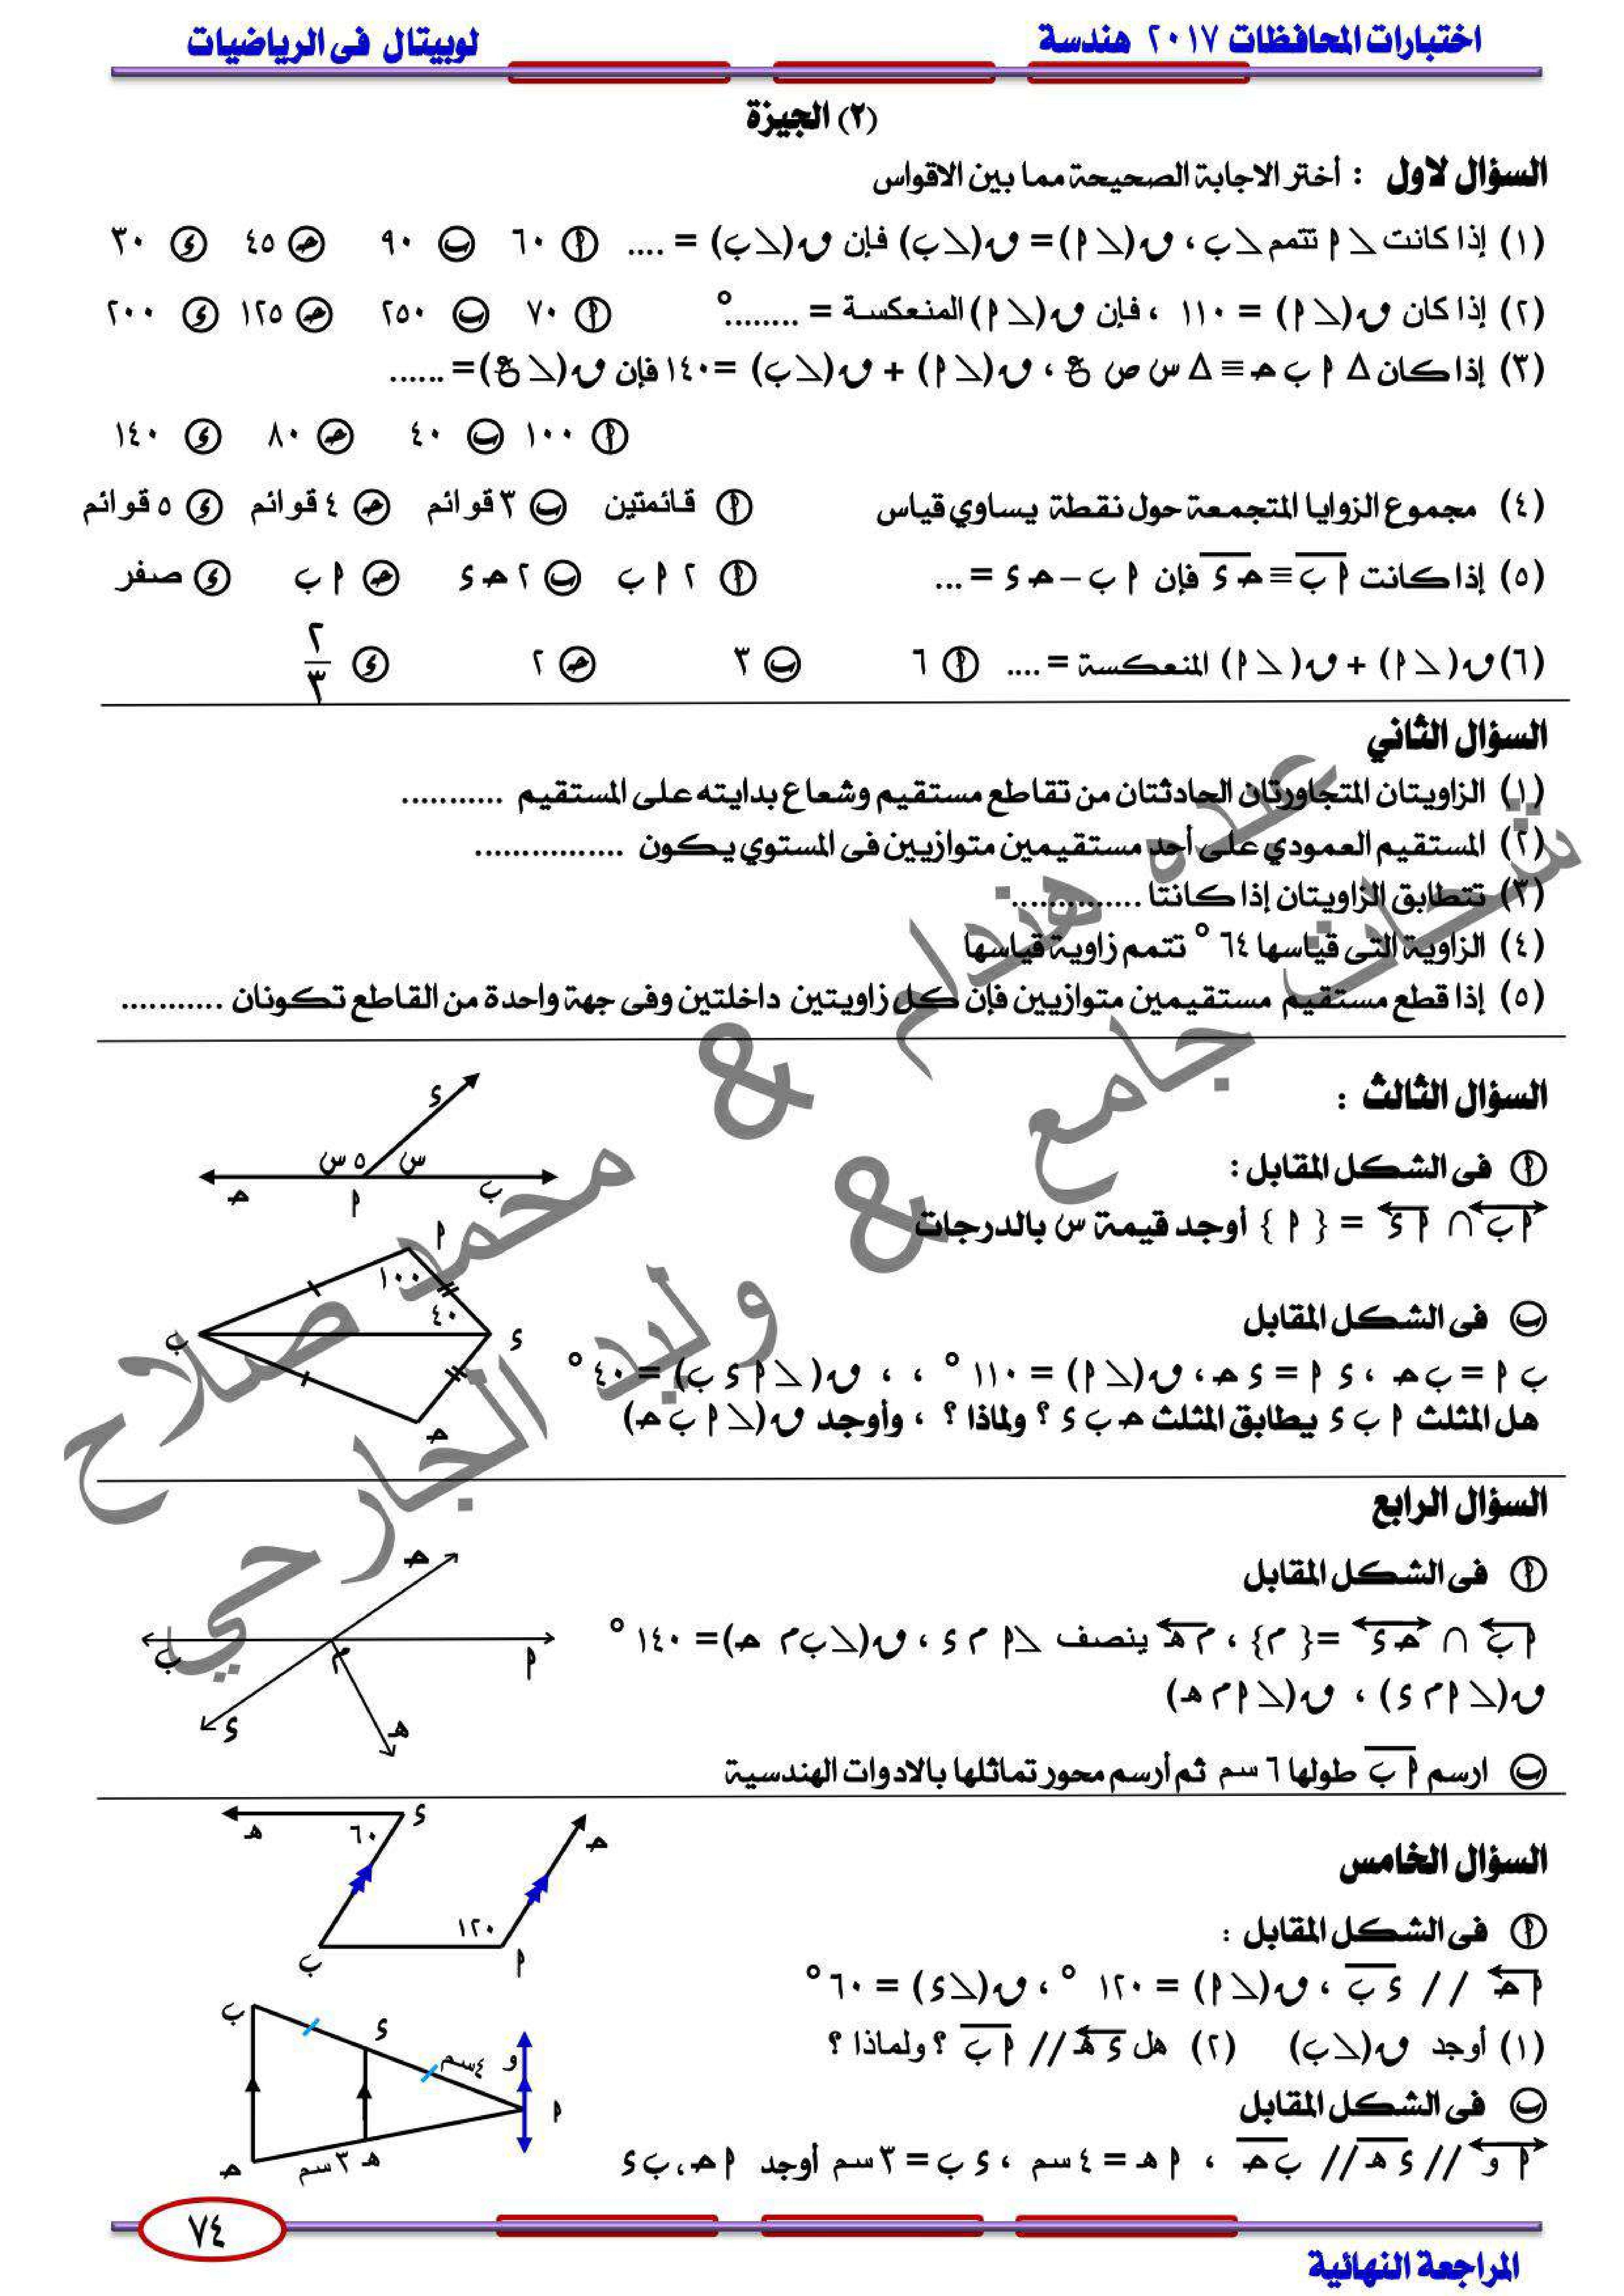 اختبارات المحافظات ٢٠١٧ هندسة
لوبيتال فى الرياضيات
(٢) الجيزة
السؤال لاول : أختر الاجابة الصحيحة مما بين الاقواس
(١) إذا كانت ∠ أ تتمم ∠ ب ، ق(∠ أ) = ق(∠ ب) فإن ق(∠ ب) = .... أ ٦٠ ب ٩٠ حـ ٤٥ ء ٣٠
(٢) إذا كان ق(∠ أ) = ١١٠ ، فإن ق(∠ أ) المنعكسة = ........° أ ٧٠ ب ٢٥٠ حـ ١٢٥ ء ٢٠٠
(٣) إذا كان Δ أ ب حـ ≡ Δ س ص ع ، ق(∠ أ) + ق(∠ ب) = ١٤٠ فإن ق(∠ ع) = ......
أ ١٠٠ ب ٤٠ حـ ٨٠ ء ١٤٠
(٤) مجموع الزوايا المتجمعة حول نقطة يساوي قياس أ قائمتين ب ٣ قوائم حـ ٤ قوائم ء ٥ قوائم
(٥) إذا كانت أ ب ≡ حـ ء فإن أ ب – حـ ء = ... أ ٢ أ ب ب ٢ حـ ء حـ أ ب ء صفر
(٦) ق(∠ أ) + ق(∠ أ) المنعكسة = .... أ ٦ ب ٣ حـ ٢ ء ٢/٣
السؤال الثاني
(١) الزاويتان المتجاورتان الحادثتان من تقاطع مستقيم وشعاع بدايته على المستقيم ...........
(٢) المستقيم العمودي على أحد مستقيمين متوازيين فى المستوي يكون ................
(٣) تتطابق الزاويتان إذا كانتا ..............
(٤) الزاوية التى قياسها ٦٤° تتمم زاوية قياسها
(٥) إذا قطع مستقيم مستقيمين متوازيين فإن كل زاويتين داخلتين وفى جهة واحدة من القاطع تكونان ...........
السؤال الثالث :
أ فى الشكل المقابل :
أ ب ∩ أ ء = { أ } أوجد قيمة س بالدرجات
ء
س
٥ س
ب
أ
حـ
ب فى الشكل المقابل
ب أ = ب حـ ، ء أ = ء حـ ، ق(∠ أ) = ١١٠° ، ، ق(∠ أ ء ب) = ٤٠°
هل المثلث أ ب ء يطابق المثلث حـ ب ء ؟ ولماذا ؟ ، وأوجد ق(∠ أ ب حـ)
أ
١٠٠
٤٠
ء
ب
حـ
السؤال الرابع
أ فى الشكل المقابل
أ ب ∩ حـ ء = { م } ، م هـ ينصف ∠ أ م ء ، ق(∠ ب م حـ) = ١٤٠°
ق(∠ أ م ء) ، ق(∠ أ م هـ)
حـ
ب
م
أ
ء
هـ
ب ارسم أ ب طولها ٦ سم ثم أرسم محور تماثلها بالادوات الهندسية
السؤال الخامس
أ فى الشكل المقابل :
أ حـ // ء ب ، ق(∠ أ) = ١٢٠° ، ق(∠ ء) = ٦٠°
(١) أوجد ق(∠ ب) (٢) هل ء هـ // أ ب ؟ ولماذا ؟
ء
هـ
٦٠
حـ
١٢٠
ب
أ
ب فى الشكل المقابل
أ و // ء هـ // ب حـ ، أ هـ = ٤ سم ، ء ب = ٣ سم أوجد أ حـ ، ب ء
ب
ء
٤سم
و
أ
هـ
٣ سم
حـ
عبده هندام & محمد صلاح
شحات جامع & وليد الجارحي
٧٤
المراجعة النهائية